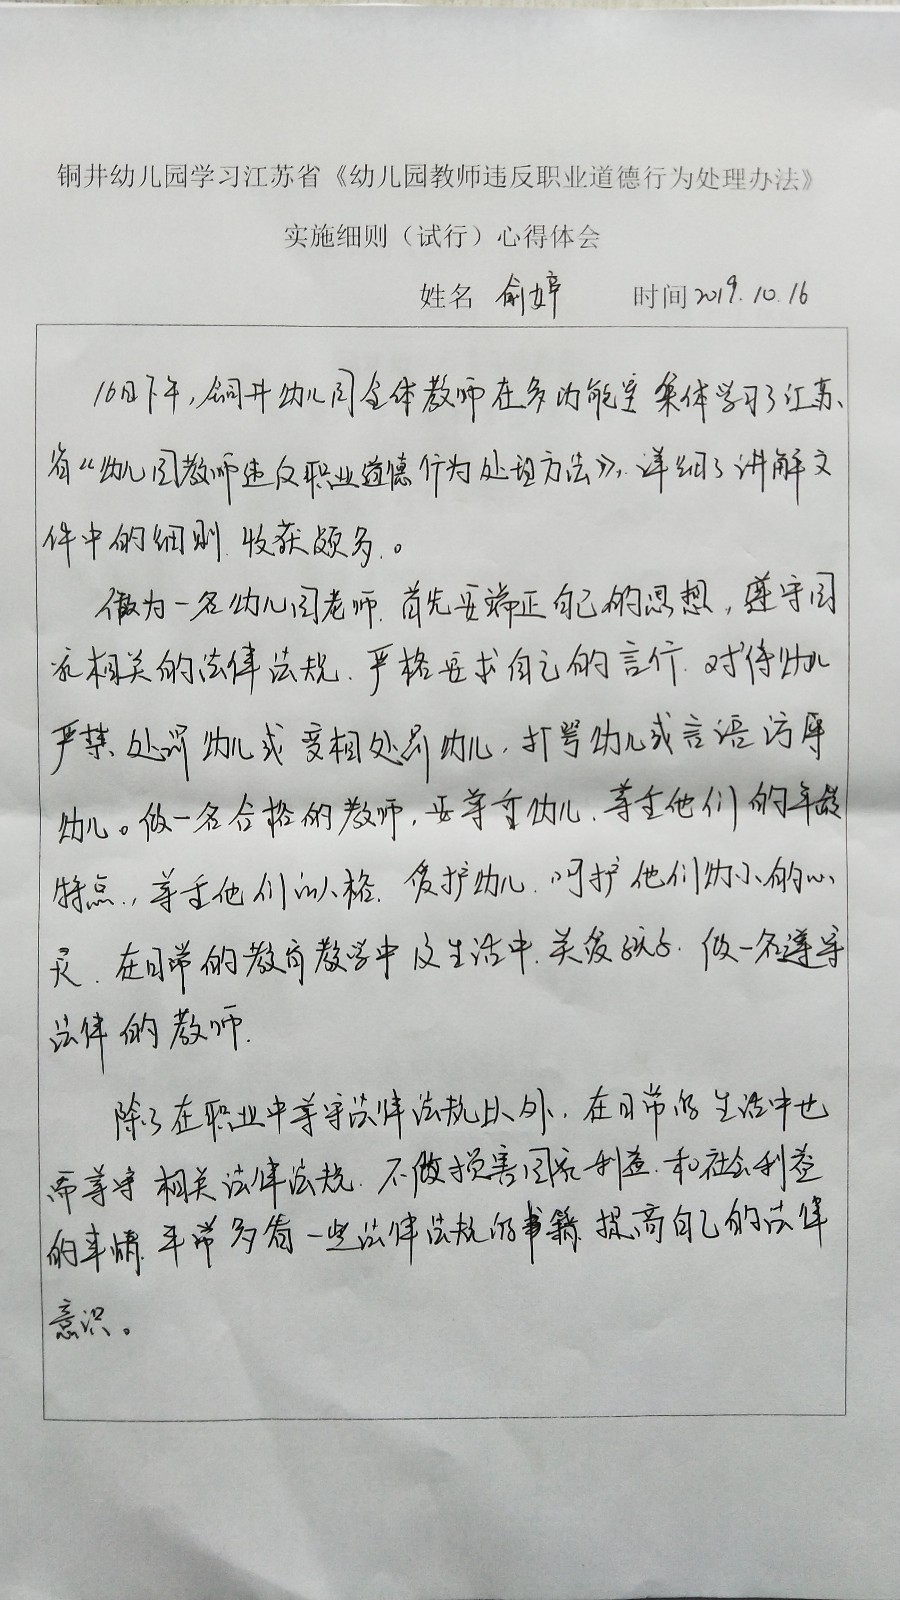 铜井幼儿园学习江苏省《幼儿园教师违反职业道德行为处理办法》
实施细则（试行）心得体会
姓名 俞婷 时间2019.10.16
16日下午，铜井幼儿园全体教师在多功能室集体学习了江苏
省“幼儿园教师违反职业道德行为处理方法》，详细了讲解文
件中的细则、收获颇多、。
做为一名幼儿园老师、首先要端正自己的思想，遵守国
家相关的法律法规、严格要求自己的言行、对待幼儿
严禁、处罚幼儿或变相处罚幼儿，打骂幼儿或言语污辱
幼儿。做一名合格的教师，要尊重幼儿、尊重他们的年龄
特点，尊重他们的人格、爱护幼儿、呵护他们幼小的心
灵、在日常的教育教学中及生活中、关爱孩子、做一名遵守
法律的教师.
除了在职业中尊守法律法规以外、在日常的生活中也
需尊守相关法律法规、不做损害国家利益、和社会利益
的事情、平常多看一些法律法规的书籍、提高自己的法律
意识。